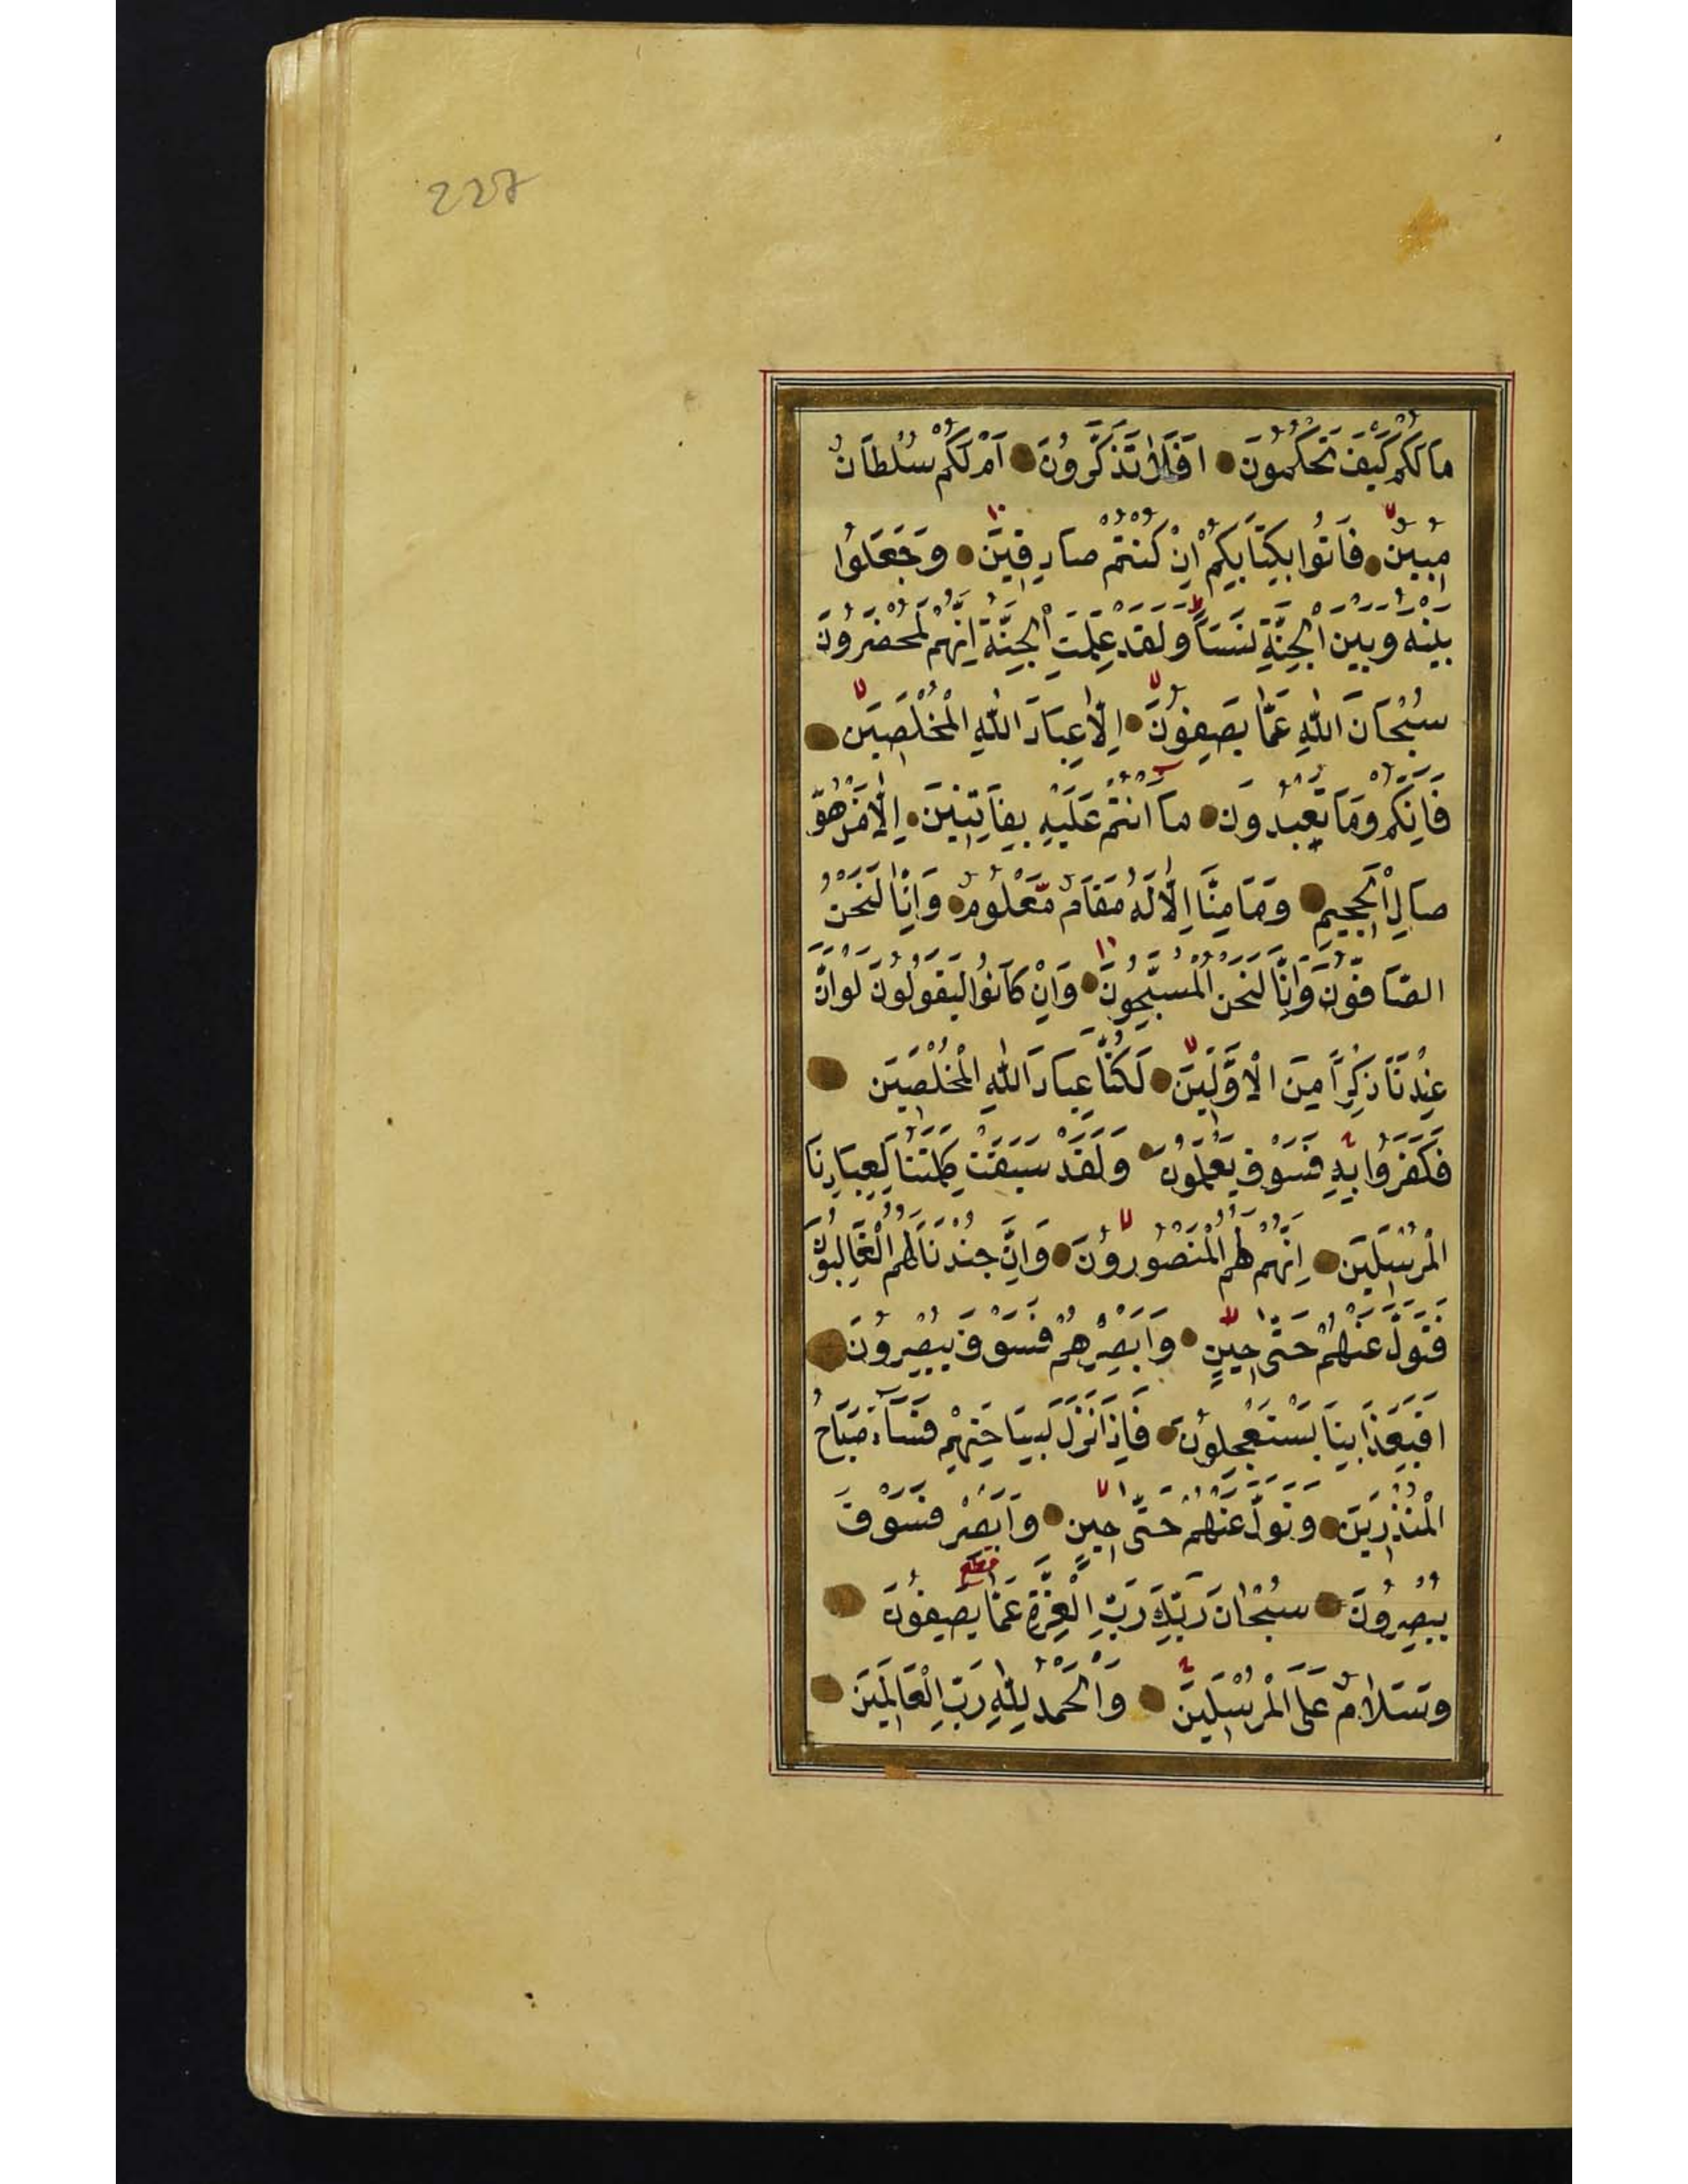 227
مَا لَكُمْ كَيْفَ تَحْكُمُونَ اَفَلَا تَذَكَّرُونَ اَمْ لَكُمْ سُلْطَانٌ
مُبِينٌ فَاْتُوا بِكِتَابِكُمْ اِنْ كُنْتُمْ صَادِقِينَ وَجَعَلُوا
بَيْنَهُ وَبَيْنَ الْجِنَّةِ نَسَبًا وَلَقَدْ عَلِمَتِ الْجِنَّةُ اِنَّهُمْ لَمُحْضَرُونَ
سُبْحَانَ اللّٰهِ عَمَّا يَصِفُونَ اِلَّا عِبَادَ اللّٰهِ الْمُخْلَصِينَ
فَاِنَّكُمْ وَمَا تَعْبُدُونَ مَا اَنْتُمْ عَلَيْهِ بِفَاتِنِينَ اِلَّا مَنْ هُوَ
صَالِ الْجَحِيمِ وَمَا مِنَّا اِلَّا لَهُ مَقَامٌ مَعْلُومٌ وَاِنَّا لَنَحْنُ
الصَّافُّونَ وَاِنَّا لَنَحْنُ الْمُسَبِّحُونَ وَاِنْ كَانُوا لَيَقُولُونَ لَوْ اَنَّ
عِنْدَنَا ذِكْرًا مِنَ الْاَوَّلِينَ لَكُنَّا عِبَادَ اللّٰهِ الْمُخْلَصِينَ
فَكَفَرُوا بِهِ فَسَوْفَ يَعْلَمُونَ وَلَقَدْ سَبَقَتْ كَلِمَتُنَا لِعِبَادِنَا
الْمُرْسَلِينَ اِنَّهُمْ لَهُمُ الْمَنْصُورُونَ وَاِنَّ جُنْدَنَا لَهُمُ الْغَالِبُونَ
فَتَوَلَّ عَنْهُمْ حَتّٰى حِينٍ وَاَبْصِرْهُمْ فَسَوْفَ يُبْصِرُونَ
اَفَبِعَذَابِنَا يَسْتَعْجِلُونَ فَاِذَا نَزَلَ بِسَاحَتِهِمْ فَسَآءَ صَبَاحُ
الْمُنْذَرِينَ وَتَوَلَّ عَنْهُمْ حَتّٰى حِينٍ وَاَبْصِرْ فَسَوْفَ
يُبْصِرُونَ سُبْحَانَ رَبِّكَ رَبِّ الْعِزَّةِ عَمَّا يَصِفُونَ
وَسَلَامٌ عَلَى الْمُرْسَلِينَ وَالْحَمْدُ لِلّٰهِ رَبِّ الْعَالَمِينَ